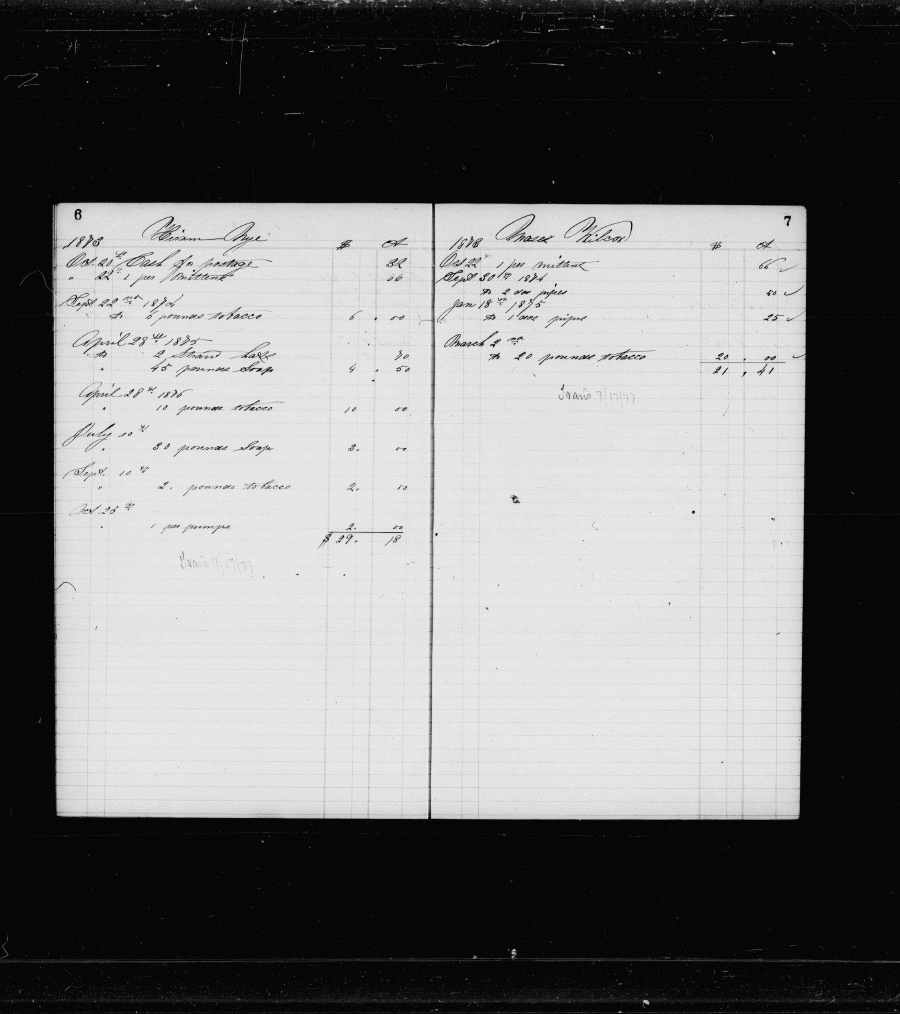 6
Hiram Nye
1873 $ Ct
Oct. 20th Cash for postage 32
" 22d 1 per Mittens 66
Sept 22nd 1874
" to 6 pounds tobacco 6 . 00
April 28th 1875
" to 2 Strand 70
" 45 pounds Soap 4 . 50
April 28th 1876
" 10 pounds tobacco 10 00
July 10th
" 30 pounds Soap 3. 00
Sept. 10th
" 2. pounds tobacco 2. 00
Oct 25th
" 1 per pumps 2. 00
$ 29. 18
7/17/77
7
Wilcox
1873 $ Ct
Oct 22d 1 per mittens 66 ✓
Sept 30th 1874
to 2 doz pipes 50 ✓
Jan 18th 1875
to 1 doz pipes 25 ✓
March 2nd
to 20 pounds tobacco 20 . 00 ✓
21 . 41
7/17/77